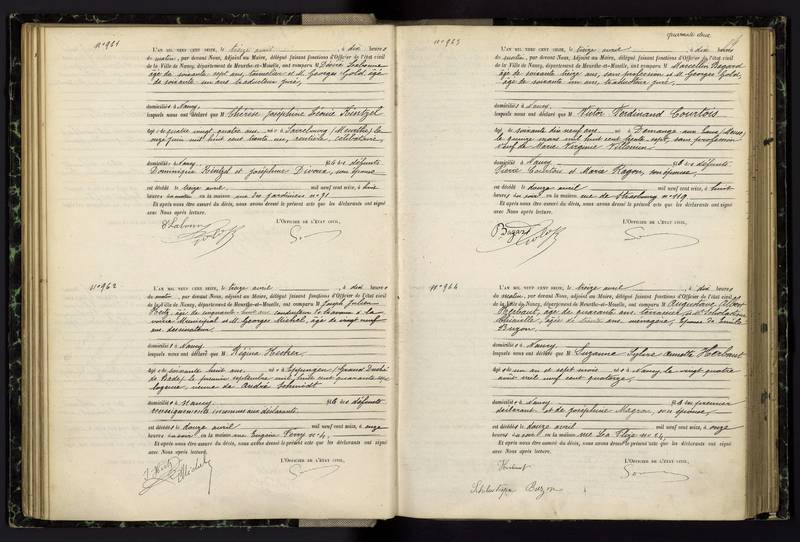 N° 961
L'AN MIL NEUF CENT SEIZE, le treize avril, à dix heures
du matin, par devant Nous, Adjoint au Maire, délégué faisant fonctions d'Officier de l'état civil
de la Ville de Nancy, département de Meurthe-et-Moselle, ont comparu M
âgé de soixante sept ans, et M. Georges Gold, âgé
de soixante un ans traducteur juré,
domiciliés à Nancy
lesquels nous ont déclaré que M Thérèse Joséphine Léonie Kintzel
âgée de quatre vingt quatre ans, née à Sarrebourg (Meurthe) le
onze juin mil huit cent trente un, rentière, célibataire,
domiciliée à Nancy fille des défunts
Dominique Kintzel et Joséphine Divoux, son épouse
est décédée le treize avril mil neuf cent seize, à huit
heures du matin, en la maison rue des Jardiniers n° 91
Et après nous être assuré du décès, nous avons dressé le présent acte que les déclarants ont signé
avec Nous après lecture.
L'OFFICIER DE L'ÉTAT CIVIL,
N° 962
L'AN MIL NEUF CENT SEIZE, le treize avril, à dix heures
du matin, par devant Nous, Adjoint au Maire, délégué faisant fonctions d'Officier de l'état civil
de la Ville de Nancy, département de Meurthe-et-Moselle, ont comparu M Joseph Julien
âgé de cinquante huit ans conducteur de travaux à la
voirie Municipal et M. Georges Michel, âgé de vingt neuf
ans dessinateur
domiciliés à Nancy
lesquels nous ont déclaré que M Régina Fischer
âgée de soixante huit ans, née à (Grand Duché
de Bade) le premier septembre mil huit cent quarante sept
logeuse, veuve de André Schmidt
domiciliée à Nancy fille des défunts
renseignements inconnus aux déclarants
est décédée le douze avril mil neuf cent seize, à onze
heures du soir, en la maison rue Eugène Ferry n° 4,
Et après nous être assuré du décès, nous avons dressé le présent acte que les déclarants ont signé
avec Nous après lecture.
L'OFFICIER DE L'ÉTAT CIVIL,
Michel
quarante deux
N° 963
L'AN MIL NEUF CENT SEIZE, le treize avril, à dix heures
du matin, par devant Nous, Adjoint au Maire, délégué faisant fonctions d'Officier de l'état civil
de la Ville de Nancy, département de Meurthe-et-Moselle, ont comparu M Marcellin Bagard
âgé de soixante treize ans, sans profession et M. Georges Gold,
âgé de soixante un ans, traducteur juré,
domiciliés à Nancy
lesquels nous ont déclaré que M Victor Ferdinand Courtois
âgé de soixante dix neuf ans, né à Demange aux Eaux (Meuse)
le quinze mars mil huit cent trente sept, sans profession
veuf de Marie Virginie Villemin
domicilié à Nancy fils des défunts
Pierre Courtois et Marie Hagon, son épouse,
est décédé le douze avril mil neuf cent seize, à huit
heures du soir, en la maison rue de Strasbourg n° 119
Et après nous être assuré du décès, nous avons dressé le présent acte que les déclarants ont signé
avec Nous après lecture.
L'OFFICIER DE L'ÉTAT CIVIL,
Bagard
N° 964
L'AN MIL NEUF CENT SEIZE, le treize avril, à dix heures
du matin, par devant Nous, Adjoint au Maire, délégué faisant fonctions d'Officier de l'état civil
de la Ville de Nancy, département de Meurthe-et-Moselle, ont comparu M Augustave Albert
Herbaut, âgé de quarante ans terrassier, et Me Scholastique
âgée de trente ans, ménagère, épouse de Emile
Buzon
domiciliés à Nancy
lesquels nous ont déclaré que M Suzanne Sylvie Annette Herbaut
âgée de un an et sept mois née à Nancy le vingt quatre
août mil neuf cent quatorze,
domiciliée à Nancy fille du premier
déclarant et de Joséphine Magron, son épouse,
est décédée le douze avril mil neuf cent seize, à onze
heures du soir, en la maison rue La Flize n° 24
Et après nous être assuré du décès, nous avons dressé le présent acte que les déclarants ont signé
avec Nous après lecture.
L'OFFICIER DE L'ÉTAT CIVIL,
Herbaut
Buzon